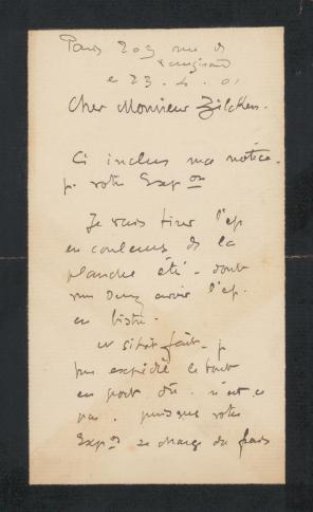 Paris 203 rue de
Vaugirard
le 23. 4. 01
Cher Monsieur Zilcken.
Ci inclus ma notice.
p. votre Expon
Je vais tirer l'ep
en couleurs de la
planche été - dont
vous devez avoir l'ep.
en bistre.
et sitôt fait - je
puis expédier le tout
en port dû. n'est ce
pas. puisque votre
Expon se charge des frais